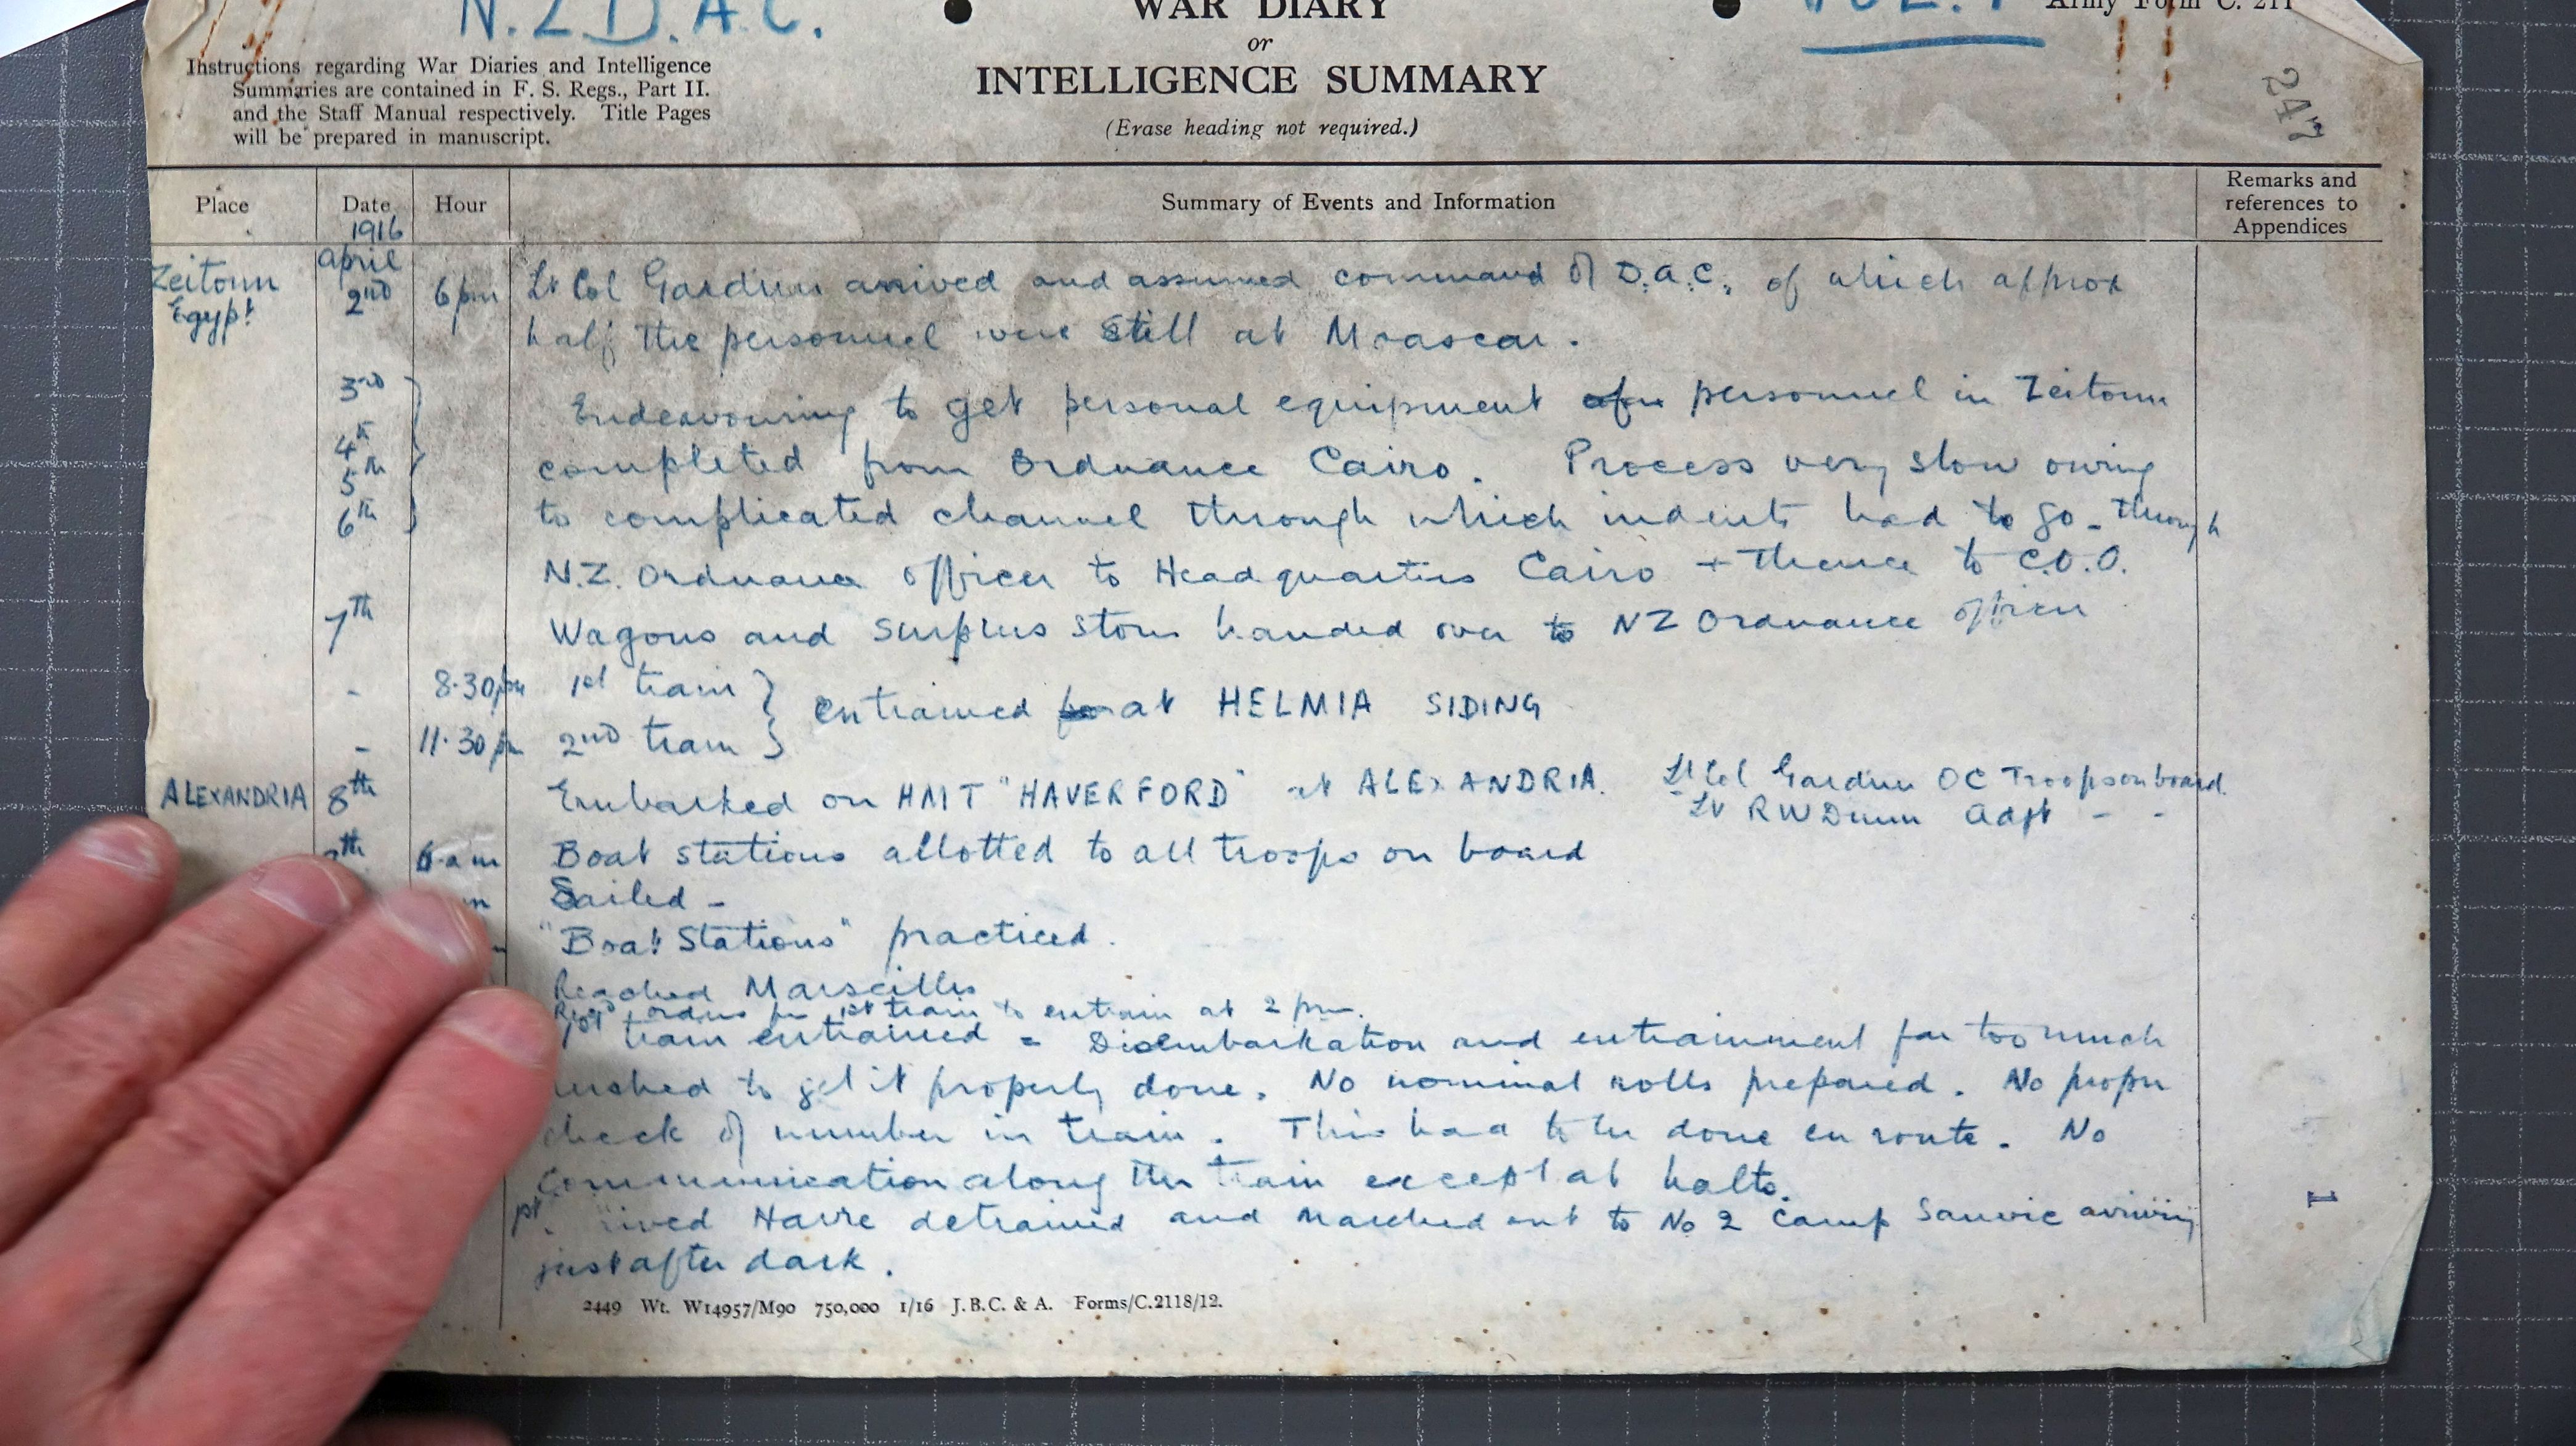 N.Z.D.A.C.
WAR DIARY
or
INTELLIGENCE SUMMARY
(Erase heading not required.)
Army Form C. 211
247
Instructions regarding War Diaries and Intelligence
Summaries are contained in F. S. Regs., Part II.
and the Staff Manual respectively. Title Pages
will be prepared in manuscript.
Place Date Hour Summary of Events and Information Remarks and references to Appendices
1916
Zeitoun Egypt April 2nd 6pm Lt Col Gardner arrived and assumed command of D.A.C. of which approx
half the personnel were still at Moascar.
3rd Endeavouring to get personal equipment personnel in Zeitoun
4th 5th completed from Ordnance Cairo. Process very slow owing
6th to complicated channel through which indents had to go - through
N.Z. Ordnance Officer to Headquarters Cairo + thence to C.O.O.
7th Wagons and surplus stores handed over to NZ Ordnance Officer
- 8.30pm 1st train } entrained at HELMIA SIDING
- 11.30pm 2nd train }
ALEXANDRIA 8th Embarked on HMT "HAVERFORD" at ALEXANDRIA. Lt Col Gardner OC Troops on board.
Lt RW Dunn Adjt - -
6 am Boat stations allotted to all troops on board
Sailed -
"Boat Stations" practiced.
Reached Marseilles
Recd orders for 1st train to entrain at 2 pm.
1st train entrained - Disembarkation and entrainment far too much
rushed to get it properly done. No nominal rolls prepared. No proper
check of number in train. This had to be done en route. No
communication along the train except at halts.
rived Havre detrained and marched out to No 2 Camp Sanvic arriving
just after dark.
1
2449 Wt. W14957/M90 750,000 1/16 J.B.C. & A. Forms/C.2118/12.